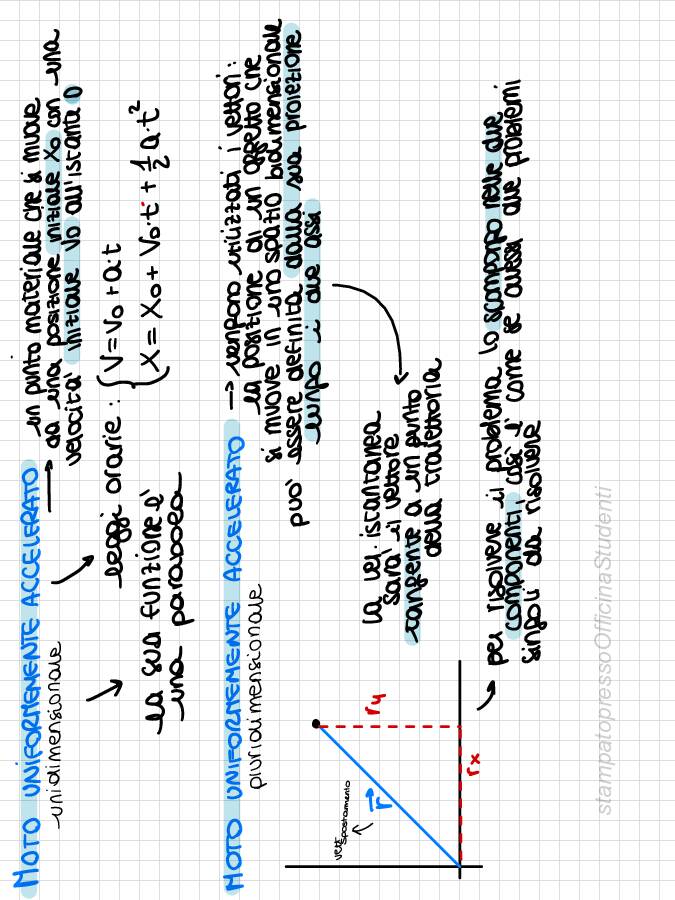 MOTO UNIFORMEMENTE ACCELERATO
unidimensionale
un punto materiale che si muove
da una posizione iniziale X0 con una
velocità iniziale V0 all'istante 0
leggi orarie : { V = V0 + a·t
X = X0 + V0·t + 1/2 a·t²
la sua funzione è
una parabola
MOTO UNIFORMEMENTE ACCELERATO
pluridimensionale
vengono utilizzati i vettori:
la posizione di un oggetto che
si muove in uno spazio bidimensionale
può essere definita dalla sua proiezione
lungo i due assi
la vel. istantanea
sarà il vettore
tangente a un punto
della traiettoria
vett spostamento
r
ry
rx
per risolvere il problema lo scompongo nelle due
componenti, così è come se avessi due problemi
singoli da risolvere
stampatopressoOfficinaStudenti